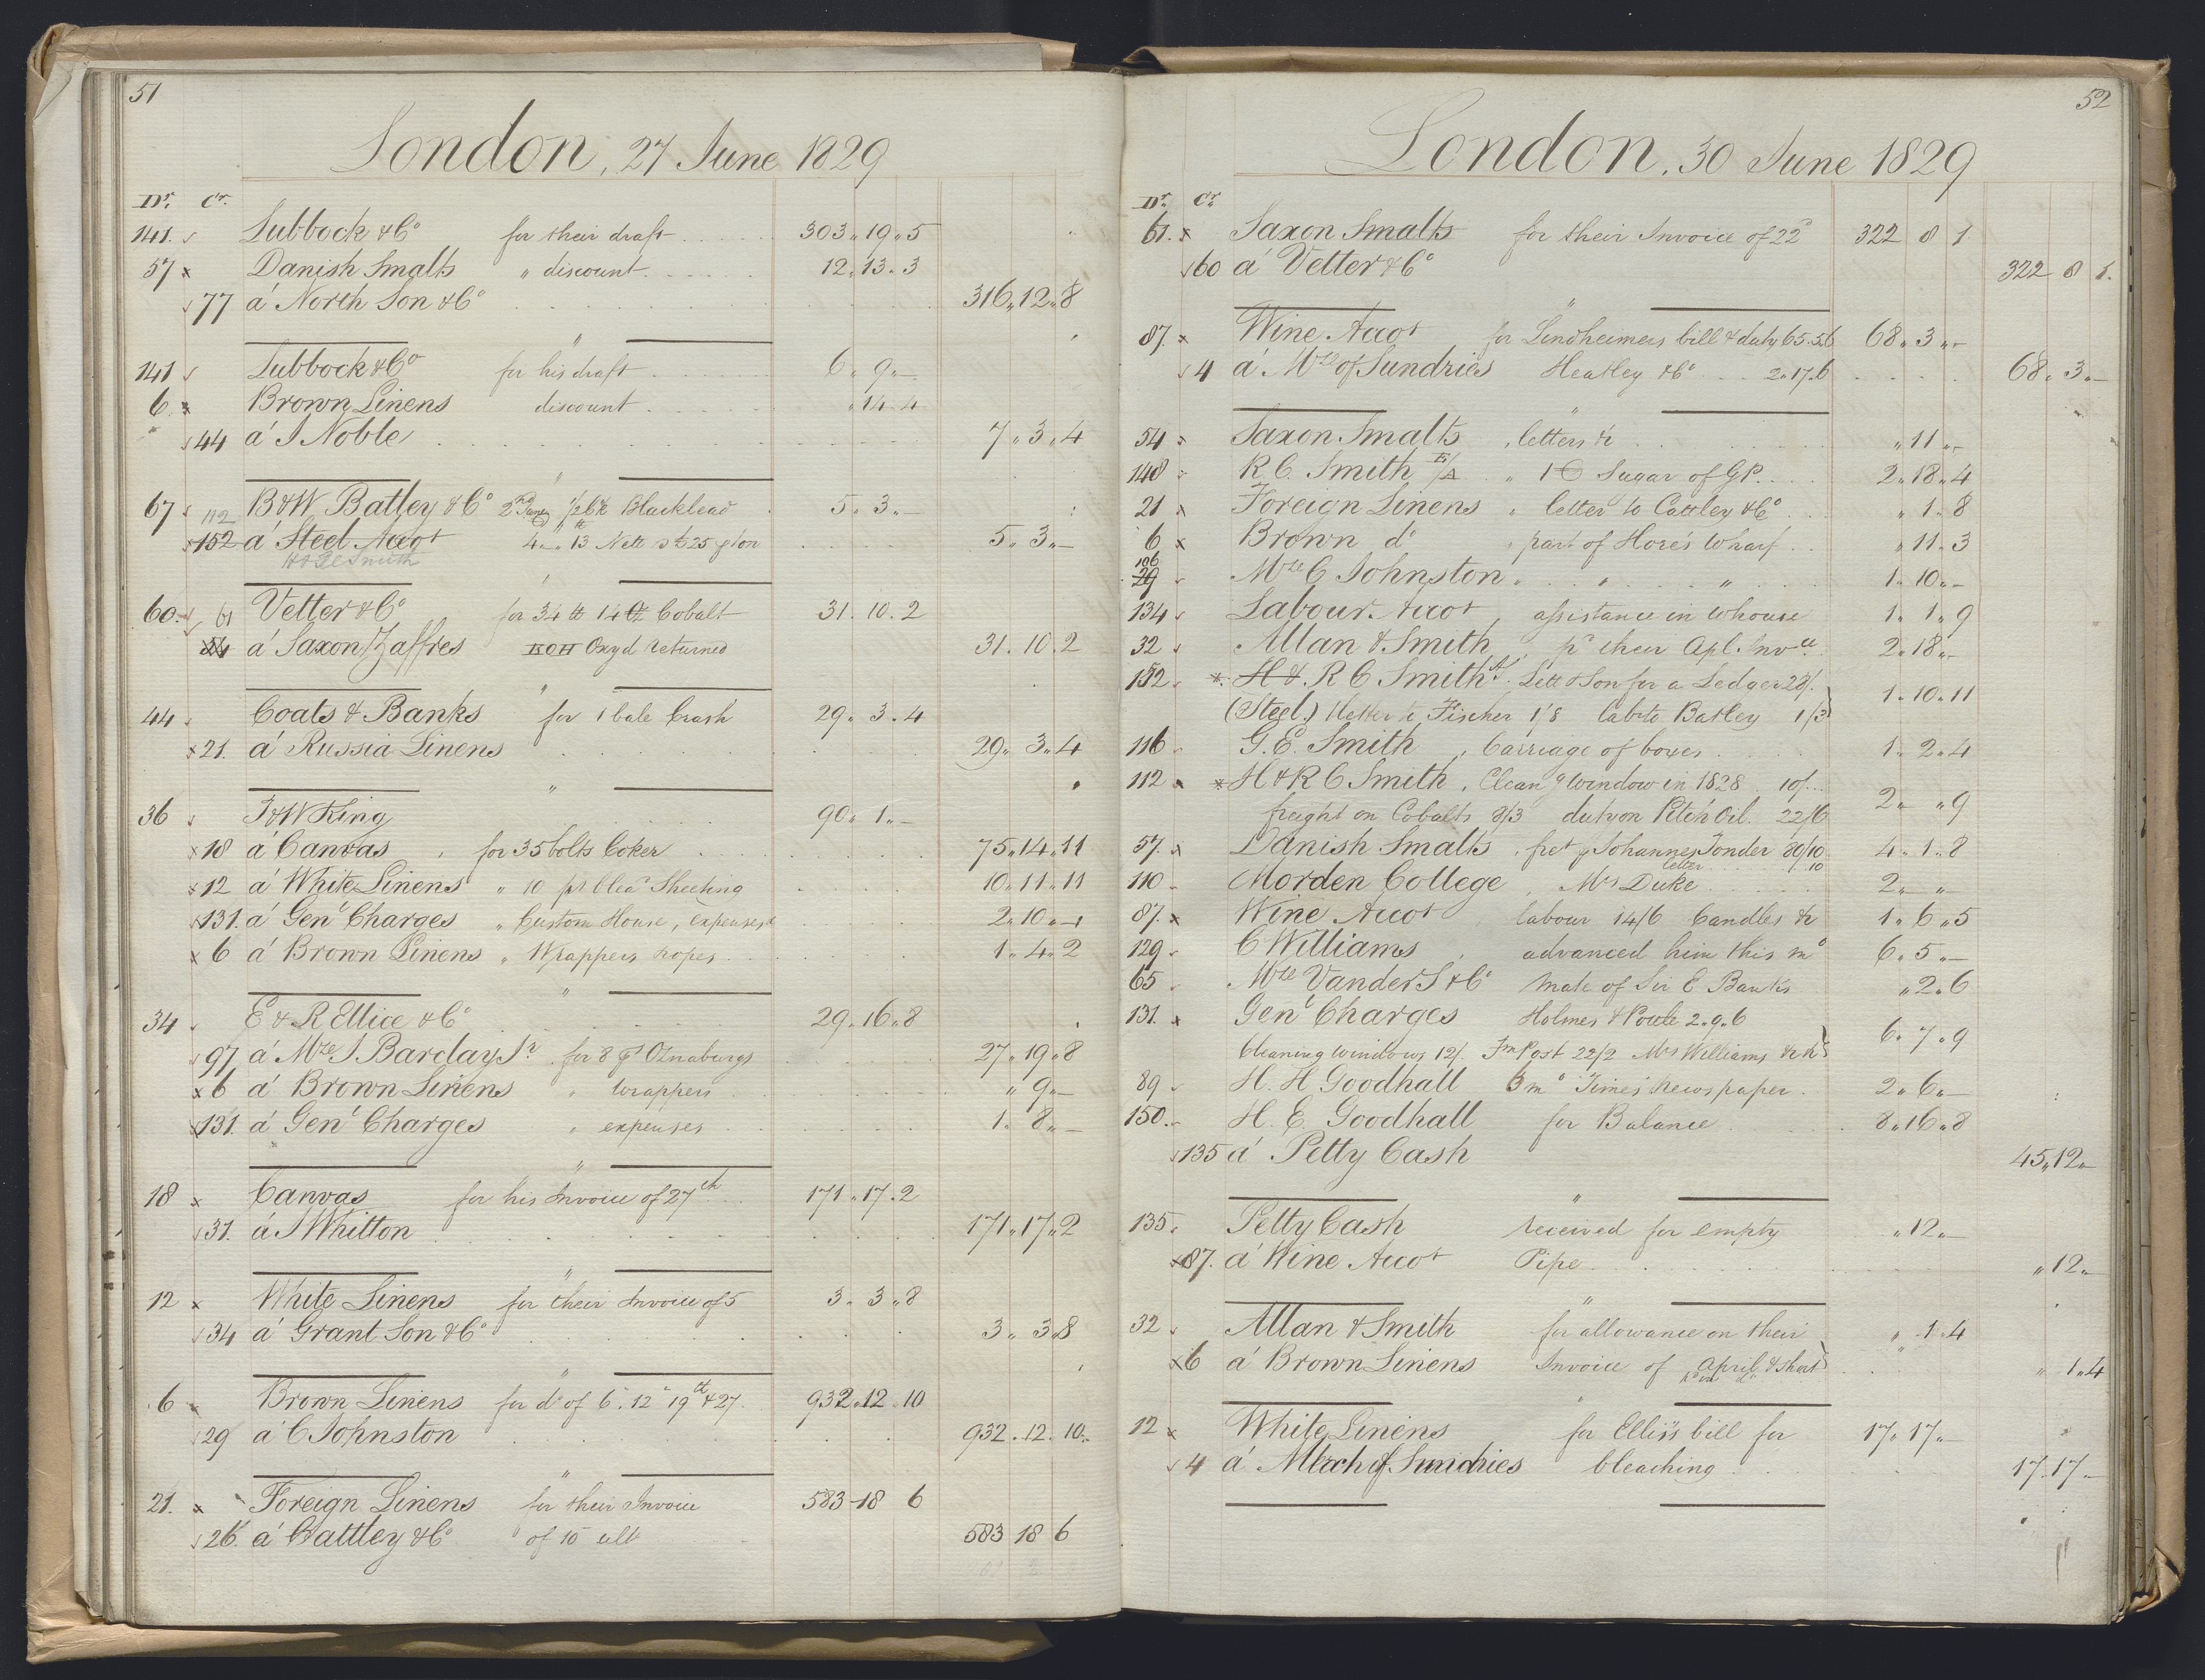 51
London, 27 June 1829
Dr. Cr.
141. Lubbock & Co for their draft 303 " 19 " 5
57 x Danish Smalts " discount 12 " 13 " 3
77 á North Son & Co 316 " 12 " 8
141 Lubbock & Co for his draft 6 " 9 " —
6 x Brown Linens discount " 14 " 4
44 á J Noble 7 " 3 " 4
67 112 B & W Batley & Co 2 June Blacklead 5 " 3 " —
152 á Steel Accot 13 Nett 5 " 3 " —
H & RC Smith
60 61 Vetter & Co for 34 lb 14 oz Cobalt 31 . 10 . 2
54 á Saxon Zaffres KOH Oxyd returned 31 . 10 . 2
44 Coats & Banks for 1 bale Crash 29 " 3 . 4
x 21. á Russia Linens 29 " 3 " 4
36 J & W King 90 " 1 " —
x 18 á Canvas for 35 bolts Coker 75 " 14 " 11
x 12 á White Linens " 10 ps blea Sheeting 10 " 11 " 11
131. á Genl Charges " Custom House, expenses 2 " 10 " —
x 6 á Brown Linens " Wrappers ropes 1 " 4 " 2
34 E & R Ellice & Co 29 " 16 " 8
97 á Mze J. Barclay Jr for 8 ps Oznaburgs 27 " 19 " 8
x 6 á Brown Linens " wrappers " 9 " —
131. á Genl Charges " expenses 1 " 8 " —
18 x Canvas for his Invoice of 27th 171 " 17 " 2
31. á J Whitton 171 " 17 " 2
12 x White Linens for their Invoice of 5 3 " 3 " 8
34 á Grant Son & Co 3 " 3 " 8
6 x Brown Linens for do of 6. 12 19th & 27 932 " 12 " 10
29 á C Johnston 932 . 12 . 10
21. x Foreign Linens for their Invoice 583 18 6
26 á Cattley & Co of 15 ult 583 18 6
52
London, 30 June 1829
Dr. Cr.
61. x Saxon Smalts for their Invoice of 22d 322 8 1
60 á Vetter & Co 322 8 1.
87. x Wine Accot for Lindheimers bill & duty 65.5.6 68 " 3 " —
4 á Mze of Sundries Heatley & Co 2 " 17 " 6 68 " 3 " —
54 Saxon Smalts , letters &c " 11 " —
148 R C. Smith " 1 C Sugar of GP. 2 " 18 " 4
21 x Foreign Linens " letter to Cattley & Co " 1 " 8
6 x Brown do " part of Hore's Wharf " 11 " 3
106
29 Mze C Johnston " " " 1 " 10 " —
134 Labour Accot , assistance in Whouse 1 " 1 " 9
32 Allan & Smith , pr their Apl. Invce 2 " 18 " —
152 x H & R C Smith . Lett & Son for a Ledger 28/. 1 " 10 " 11
(Steel.) Fischer 1/8 Batley 1/3
116 G. E. Smith , Carriage of boxes 1 " 2 " 4
112 x H & R C Smith , Cleang Window in 1828 10/. 2 " " 9
freight on Cobalts 8/3 duty on Pitch Oil. 22/6
57. x Danish Smalts . fret p Johannes Tonder 80/10 4 " 1 " 8
letter /10
110 Morden College , Mrs Duke 2 " "
87. x Wine Accot labour 14/6 Candles &c 1 " 6 " 5
129 C Williams , advanced him this mo 6 " 5 " —
65 Mze Vander S & Co Mate of Sir E Banks " 2 " 6
131. x Genl Charges Holmes & Poule 2.9.6 6 " 7 " 9
Cleaning windows 12/. Post 22/2 Mrs Williams
89 H. H Goodhall 3 mo Times Newspaper 2 " 6 " —
150. H. E. Goodhall for Balance 8 " 16 " 8
135 á Petty Cash 45 " 12 " —
135. Petty Cash received for empty " 12 " —
x 87. á Wine Accot Pipe " 12 " —
32 Allan & Smith for allowance on their " 1 " 4
x 6 á Brown Linens Invoice of April & short " 1 " 4
12 x White Linens for Ellis's bill for 17 " 17 " —
4 á Merch of Sundries bleaching 17 " 17 —